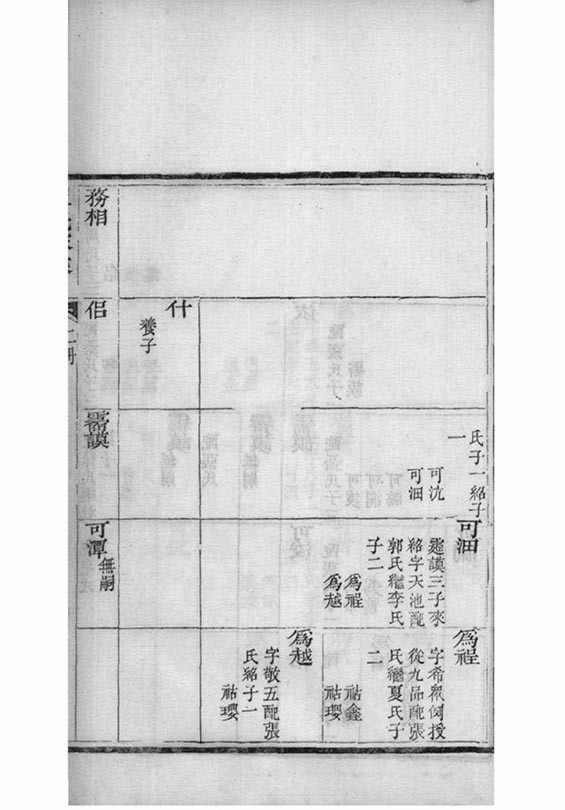 氏子一紹子
一
可沆
可沺
可沺
謨三子來
紹字天池配
郭氏繼李氏
子二
爲程
爲越
爲程
字希眾例授
從九品配張
氏繼夏氏子
二
祜鑫
祜瓔
爲越
字敬五配張
氏紹子一
祜瓔
什
養子
務相
侣
謨
可潭
無嗣